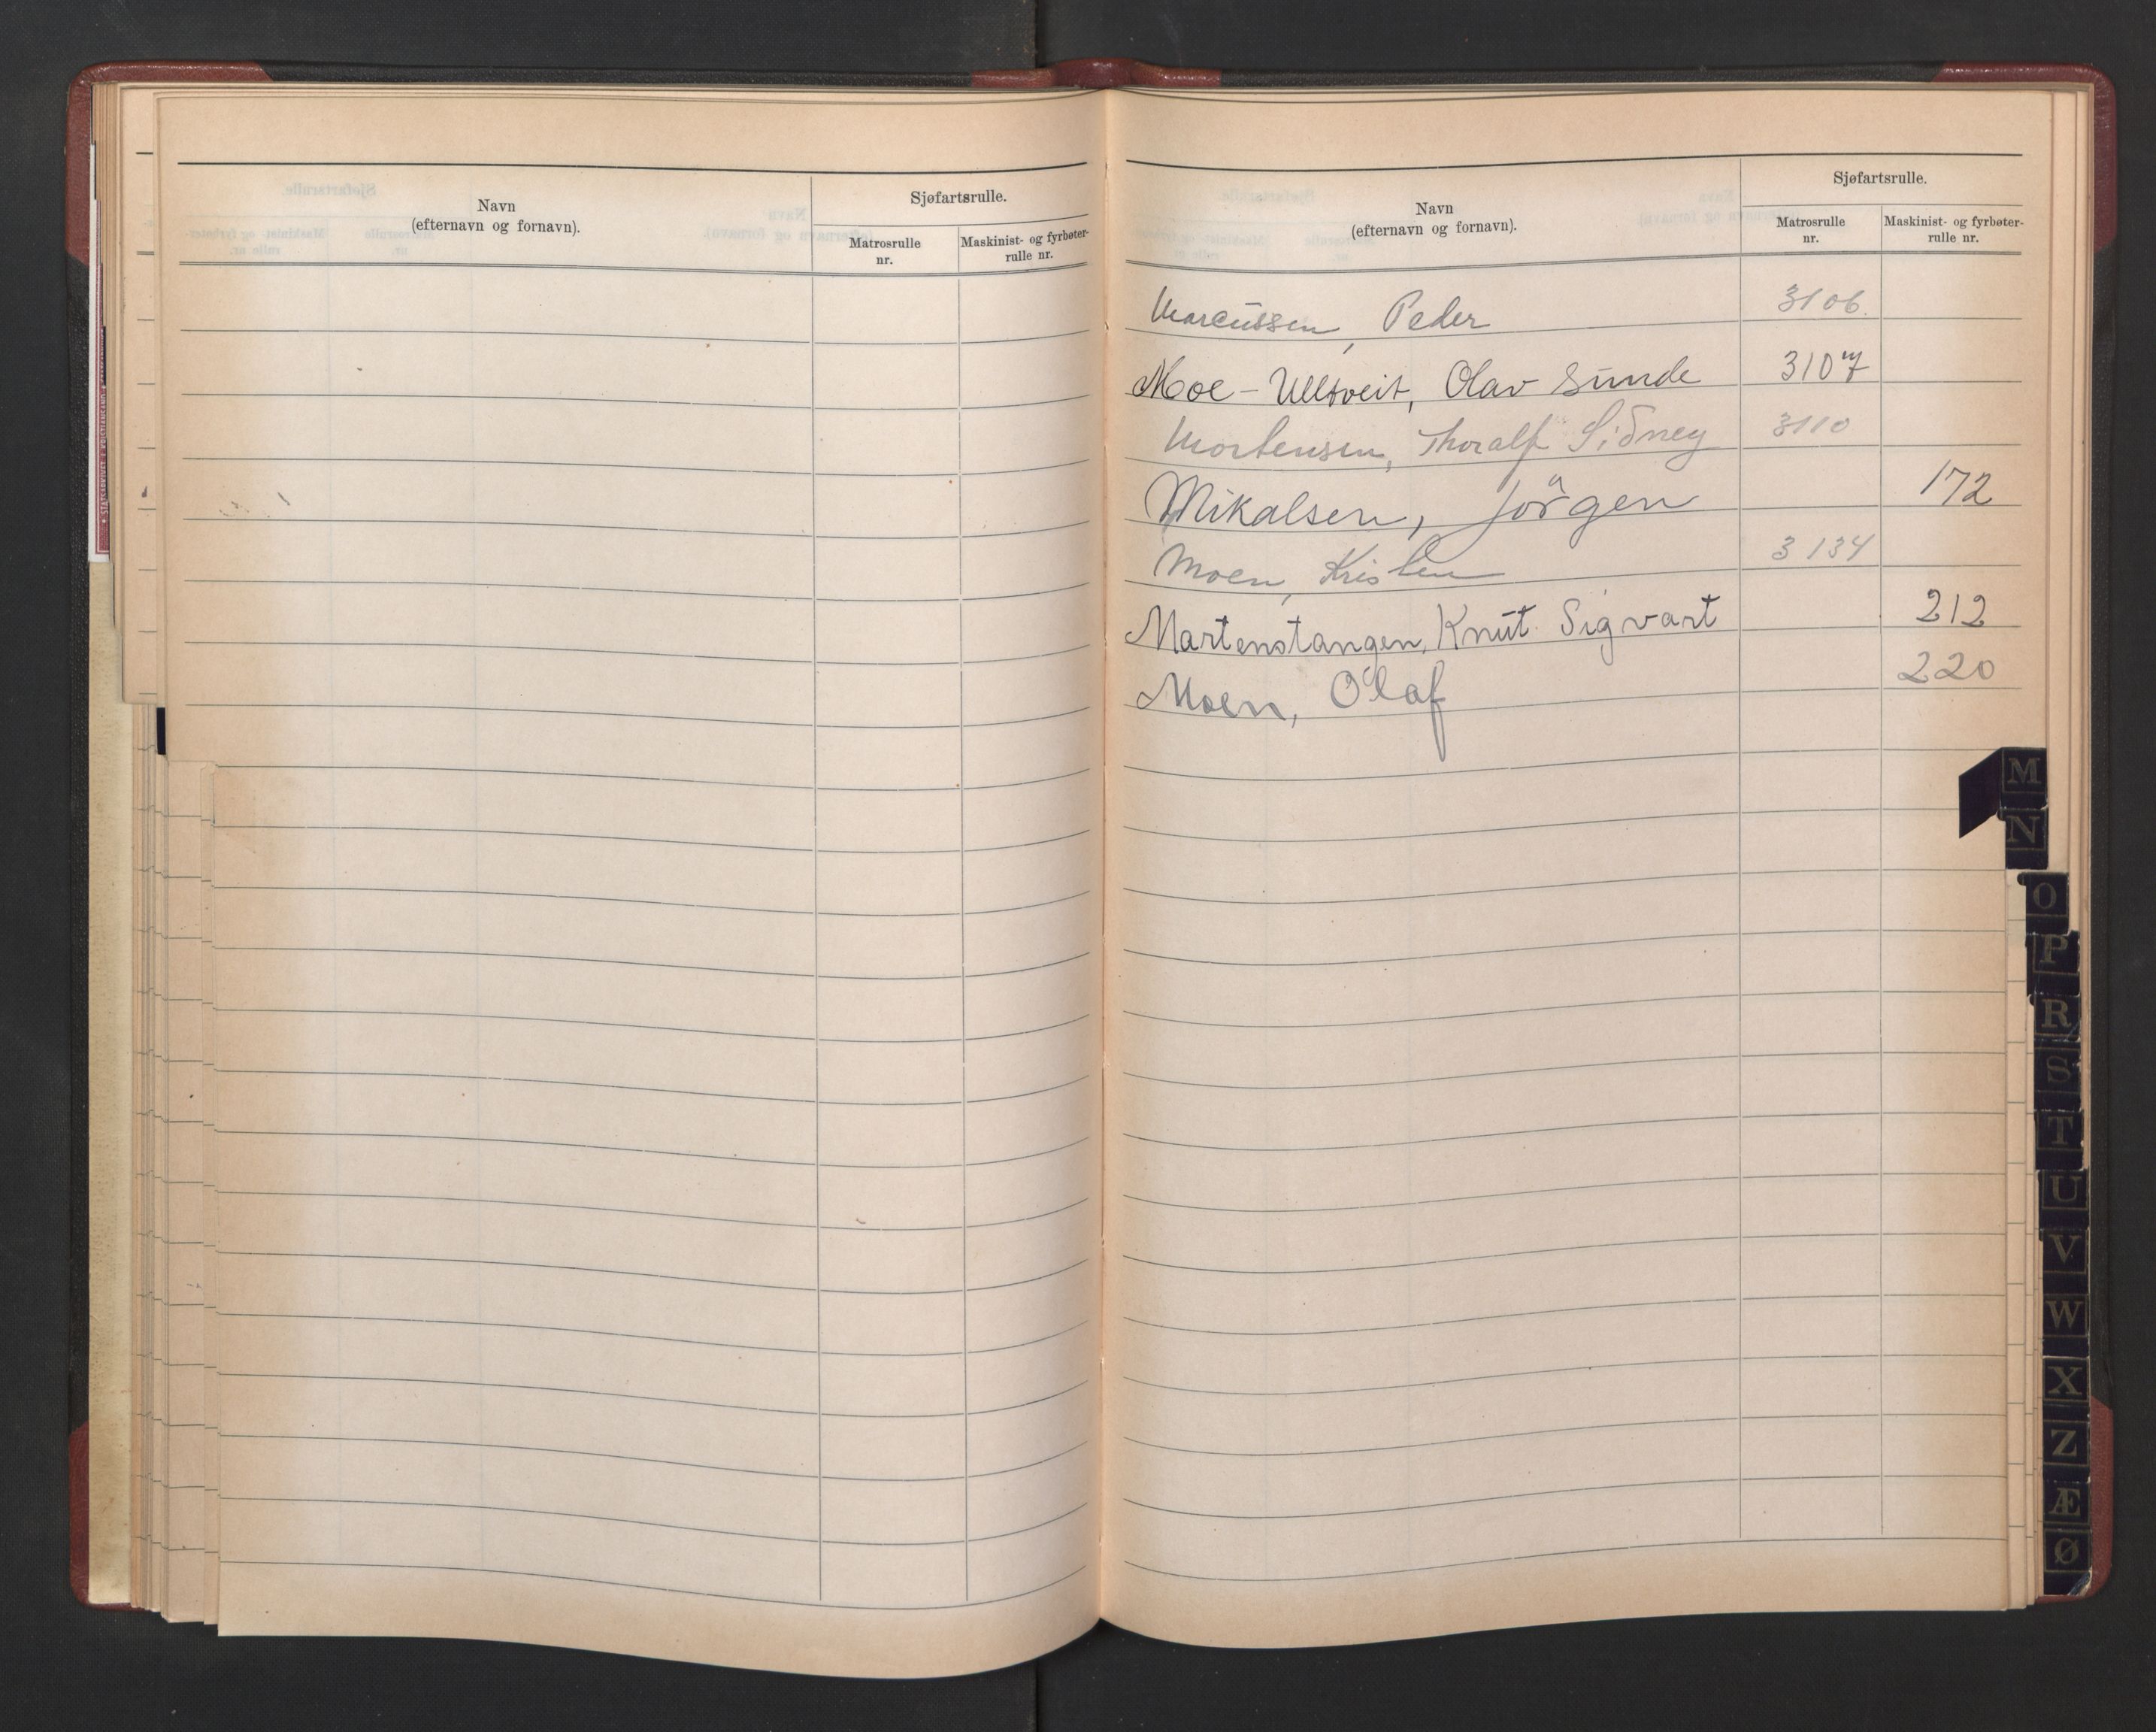 Navn
(efternavn og fornavn).
Sjøfartsrulle.
Matrosrulle
nr.
Maskinist- og fyrbøter-
rulle nr.
Navn
(efternavn og fornavn).
Sjøfartsrulle.
Matrosrulle
nr.
Maskinist- og fyrbøter-
rulle nr.
Marcussen, Peder 3106.
Moe-Ulltveit, Olav Sunde 3107
Mortensen, Thoralf Sidney 3110
Mikalsen, Jörgen 172
Moen, Kristen 3134
Martenstangen, Knut Sigvart 212
Moen, Olaf 220
M
N
O
P
R
S
T
U
V
W
X
Z
Æ
Ø